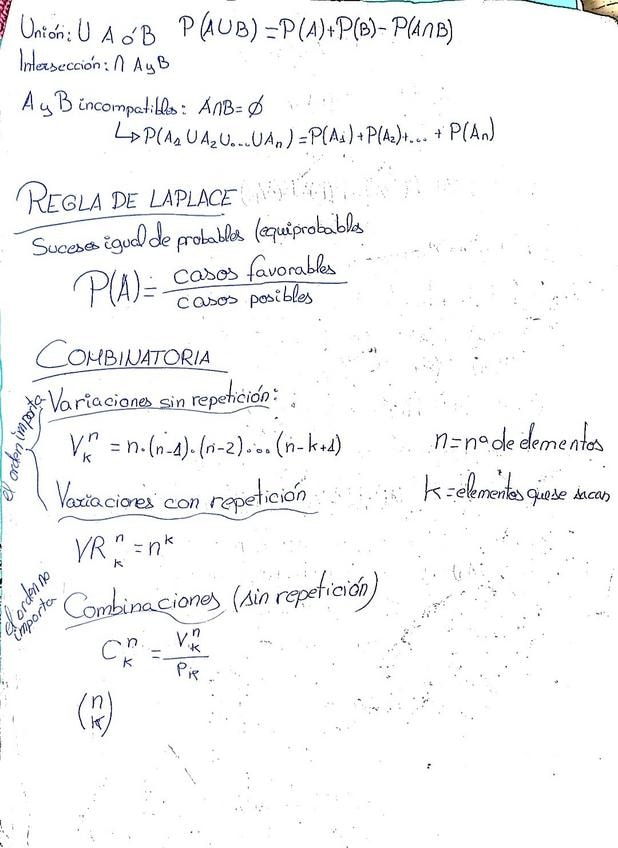 Unión: U A ó B P(A∪B) = P(A)+P(B)- P(A∩B)
Intersección: ∩ A y B
A y B incompatibles: A∩B = Ø
↳ P(A₁ ∪ A₂ ∪ ... ∪ Aₙ) = P(A₁) + P(A₂) + ... + P(Aₙ)
REGLA DE LAPLACE
Sucesos igual de probables (equiprobables
P(A) = casos favorables / casos posibles
COMBINATORIA
el orden importa
Variaciones sin repetición:
V_k^n = n·(n-1)·(n-2)·...(n-k+1) n = nº de elementos
Variaciones con repetición k = elementos que se sacan
VR_k^n = n^k
el orden no importa
Combinaciones (sin repetición)
C_k^n = V_k^n / P_k
(n k)